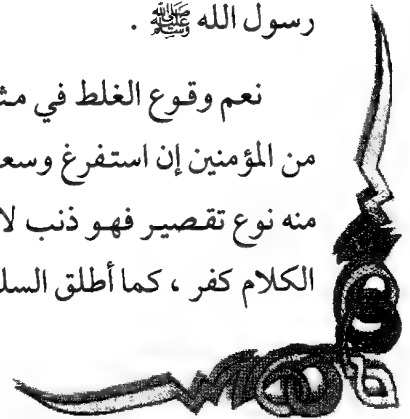 رسول الله ﷺ .
نعم وقوع الغلط في مث
من المؤمنين إن استفرغ وسع
منه نوع تقصير فهو ذنب لا
الكلام كفر ، كما أطلق السل